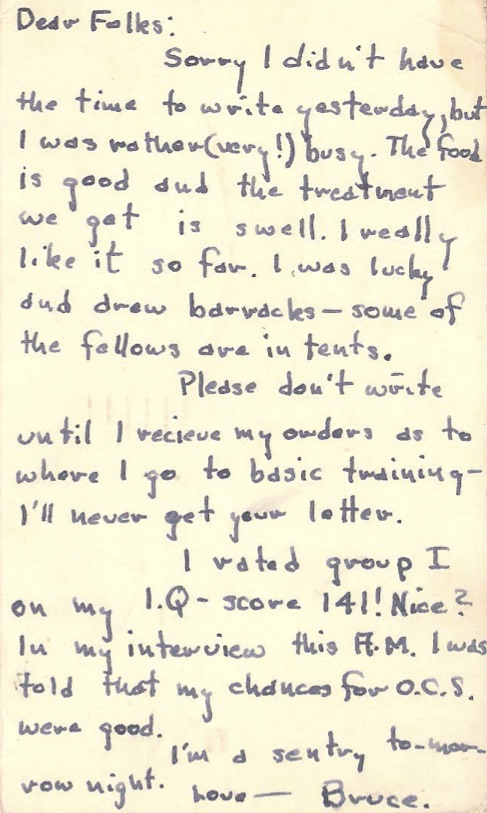 Dear Folks:
Sorry I didn't have
the time to write yesterday, but
I was rather (very!) busy. The food
is good and the treatment
we get is swell. I really
like it so far. I was lucky
and drew barracks — some of
the fellows are in tents.
Please don't write
until I recieve my orders as to
where I go to basic training —
I'll never get your letter.
I rated group I
on my I.Q - score 141! Nice?
In my interview this A.M. I was
told that my chances for O.C.S.
were good.
I'm a sentry to-mor-
row night.
Love — Bruce.